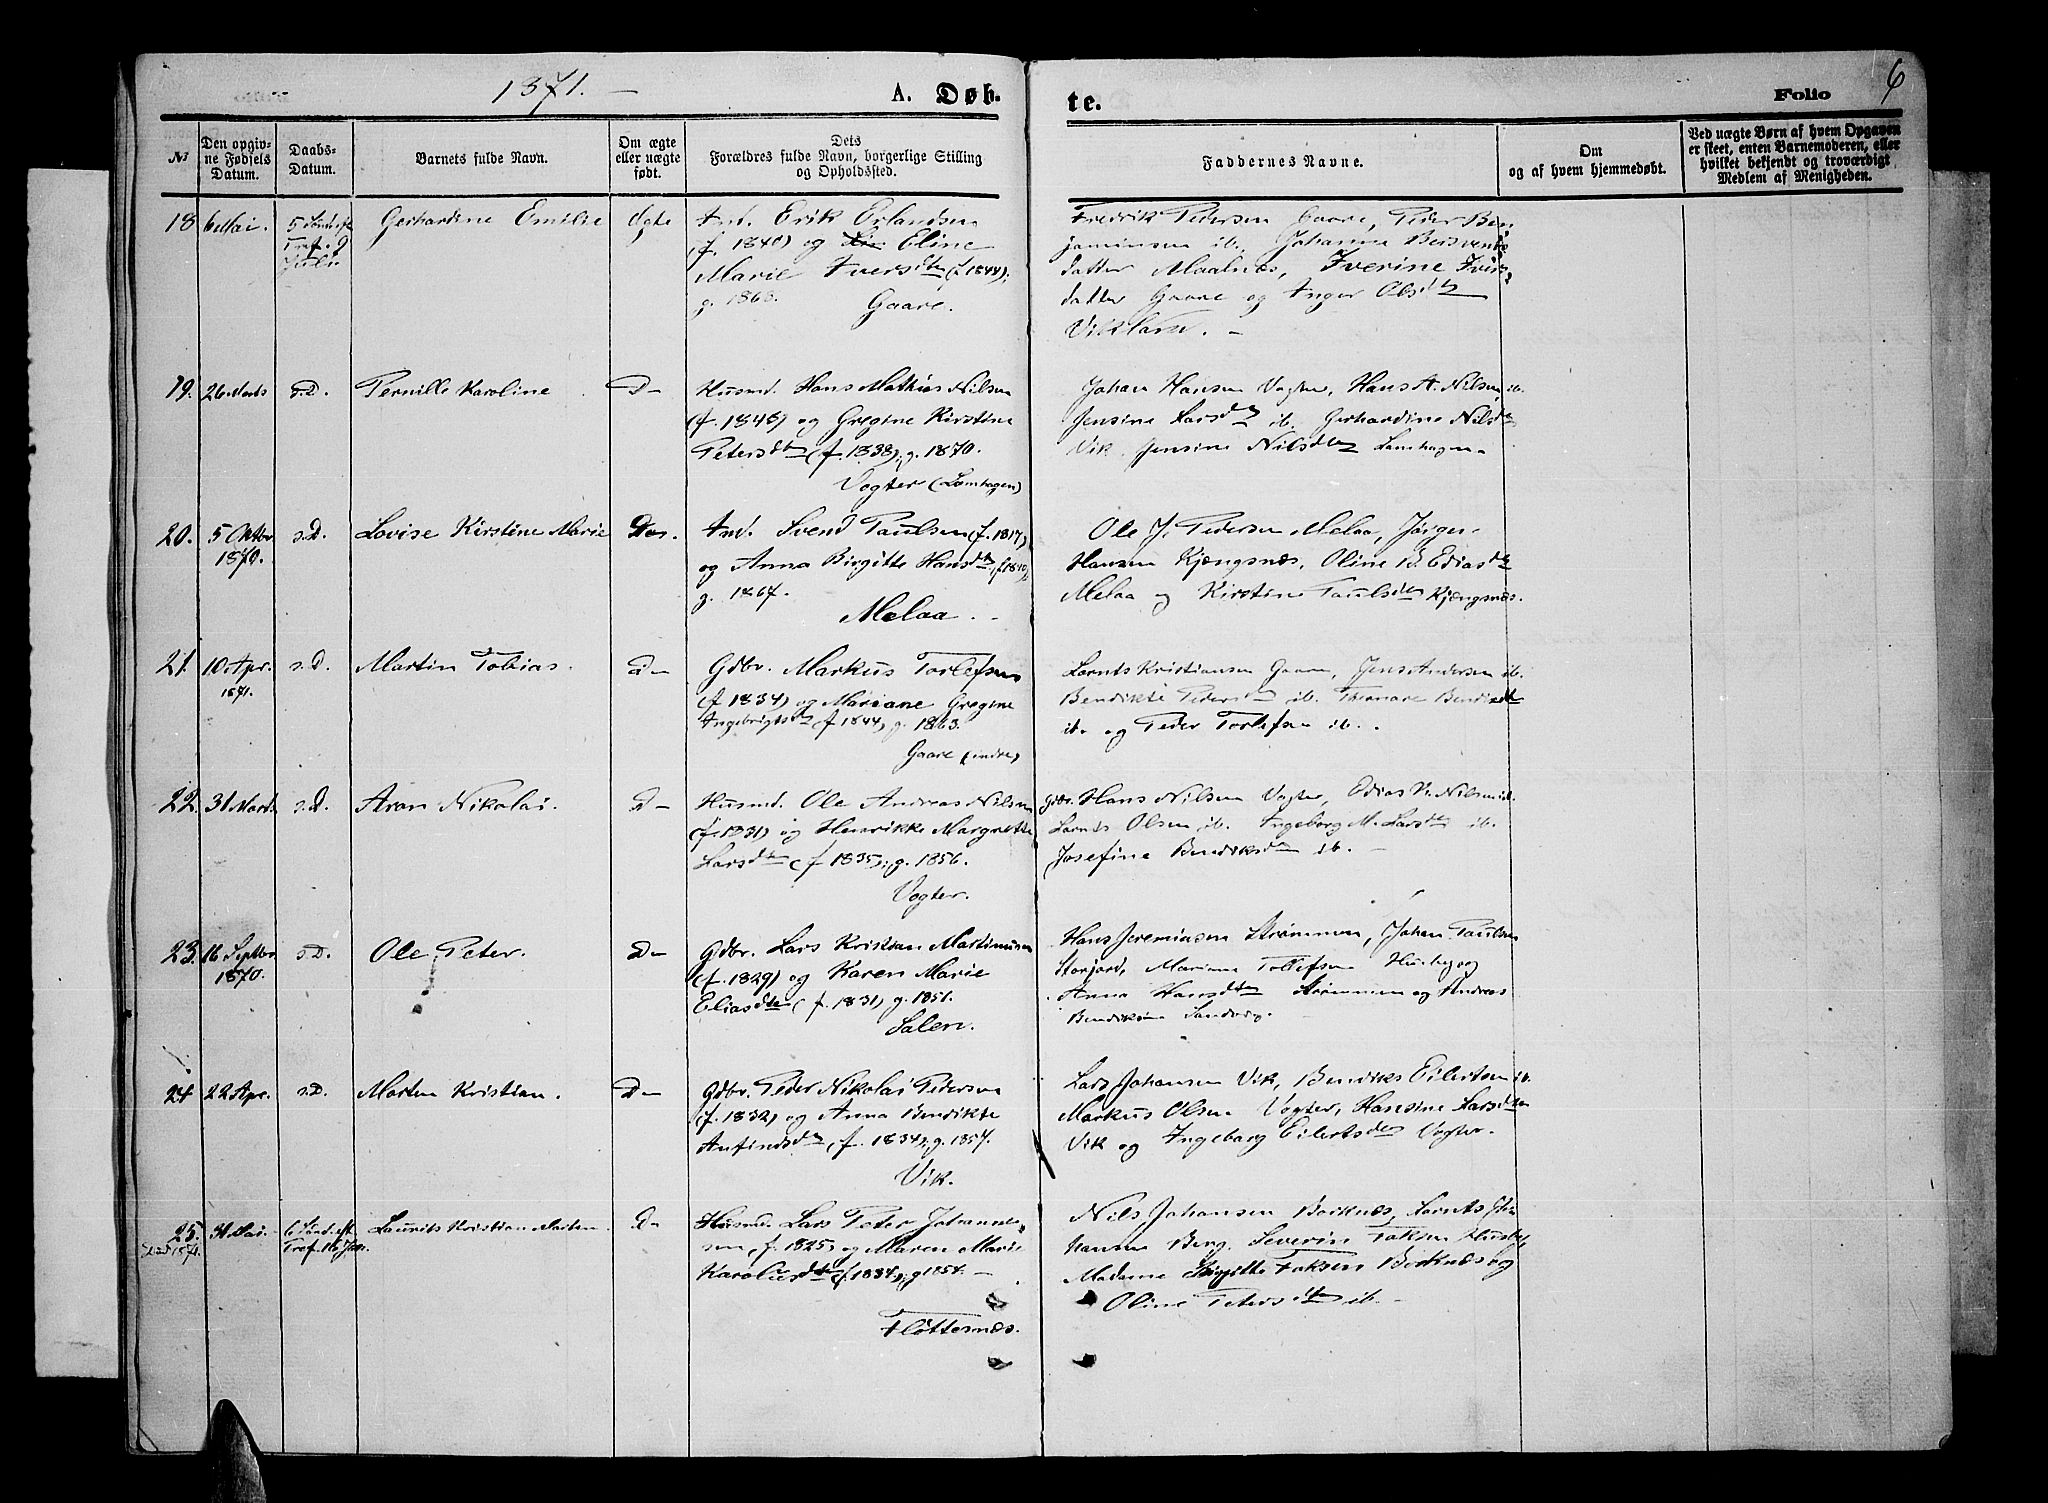 1871. —
A. Døb-
te.
Folio
6
No
Den opgiv-
ne Fødsels
Datum.
Daabs-
Datum.
Barnets fulde Navn.
Om ægte
eller uægte
født.
Dets
Forældres fulde Navn, borgerlige Stilling
og Opholdssted.
Faddernes Navne.
Om
og af hvem hjemmedøbt.
Ved uægte Børn af hvem Opgaven
er skeet, enten Barnemoderen, eller
hvilket bekjendt og troværdigt
Medlem af Menigheden.
18
6 Mai.
5 Sønd. eft.
Tref. 9
Juli
Gerhardine Emilie
Ægte
Ind. Erik Erlandsen
(f. 1840) og Eline
Marie Iversdtr (f. 1844);
g. 1868.
Gaare.
Fredrik Pedersen Gaare, Peder Ben-
jaminsen ib., Johanna Bersvends-
datter Maalnes, Iverine Ivers-
datter Gaare og Inger Olsdtr
Vikholm. —
19.
26 Marts
s. D.
Pernille Karoline
D—
Husmd. Hans Mathias Nilsen
(f. 1848) og Gregine Kirstine
Petersdtr (f. 1838); g. 1870.
Vogter (Lamhagen)
Johan Hansen Vogter, Hans A. Nilsen, ib.
Jensine Larsdtr ib. Gerhardine Nilsdtr
Vik. Jensine Nilsdtr Lamhagen.
20.
5 Oktbr
1870.
s. D.
Lovise Kirstine Marie
Do.
Ind. Svend Paulsen (f. 1817)
og Anna Birgitte Hansdtr (f. 1840);
g. 1867.
Melaa. -
Ole J. Pedersen Melaa, Jørgen
Hansen Kjængsnæs, Oline B. Ediasdtr
Melaa og Kirstine Paulsdtr Kjængsnæs.
21.
10 Apr.
1871.
s. D.
Martin Tobias.
D—
Gdbr. Markus Torlefsen
(f. 1834) og Mariane Gregine
Ingebrigtsdtr (f. 1844), g. 1863.
Gaare (indre)
Lornts Kristiansen Gaare, Jens Andersen ib.
Bendikte Pedersdtr ib. Bendiksdtr
ib. og Peder Torlefsen ib.
22.
31 Marts.
s. D.
Aron Nikolai.
D—
Husmd. Ole Andreas Nilsen
(f. 1831) og Henrikke Margrette
Larsdtr (f. 1835); g. 1856.
Vogter.
Gdbr. Hans Nilsen Vogter, Edias N. Nilsen ib.
Lornts Olsen ib. Ingeborg M. Larsdtr ib.
Josefine Bendiksdtr ib. —
23.
16 Septbr
1870.
s. D.
Ole Peter.
D—
Gdbr. Lars Kristian Martinusen
(f. 1829) og Karen Marie
Eliasdtr (f. 1831), g. 1851.
Salen.
Hans Jeremiasen Strømmen, Johan Paulsen
Storjord, Mariane Tollefsen Husby og
Anna Hansdtr Strømmen og Andreas
Bendiksen Sandvig.
24.
22 Apr.
s. D.
Morten Kristian.
D—
Gdbr. Peder Nikolai Pedersen
(f. 1832) og Anna Bendikte
Anfindsdtr (f. 1834); g. 1857.
Vik.
Lars Johansen Vik, Bendiks Eilertsen ib.
Markus Olsen Vogter, Hansine Larsdtr
Vik og Ingeborg Eilertsdtr Vogter.
25.
31 Mai.
6 Sønd. eft.
Tref. 16 Juli.
Laurits Kristian Morten.
D—
Husmd. Lars Peter Johanne-
sen (f. 1825) og Maren Marie
Karoliusdtr (f. 1834); g. 1854. —
Fløtternæs.
Nils Johansen Borknæs, Lornts Jo-
hansen Berg, Severin Falksen Husby,
Madame Birgitte Falksen Borknæs og
Oline Petersdtr ib. —